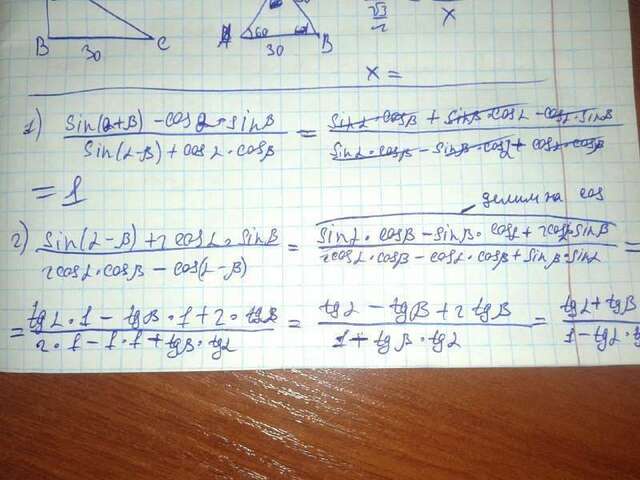 B 30 C
A 60 60 B
30
√3/2
x
x =
1) (sin(α+β) - cosα·sinβ)/(sin(α-β) + cosα·cosβ) = (sinα·cosβ + sinβ·cosα - cosα·sinβ)/(sinα·cosβ - sinβ·cosα + cosα·cosβ)
= 1
делим на cos
2) (sin(α-β) + 2cosα·sinβ)/(2cosα·cosβ - cos(α-β)) = (sinα·cosβ - sinβ·cosα + 2cosα·sinβ)/(2cosα·cosβ - cosα·cosβ + sinβ·sinα) =
= (tgα·1 - tgβ·1 + 2·tgβ)/(2·1 - 1·1 + tgβ·tgα) = (tgα - tgβ + 2tgβ)/(1 + tgβ·tgα) = (tgα + tgβ)/(1 - tgα·t